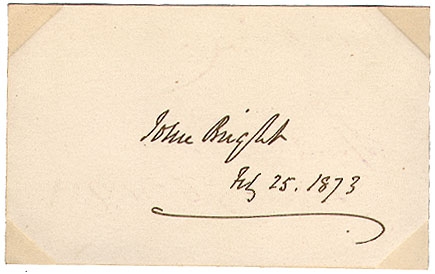 John Bright
Feby 25. 1873